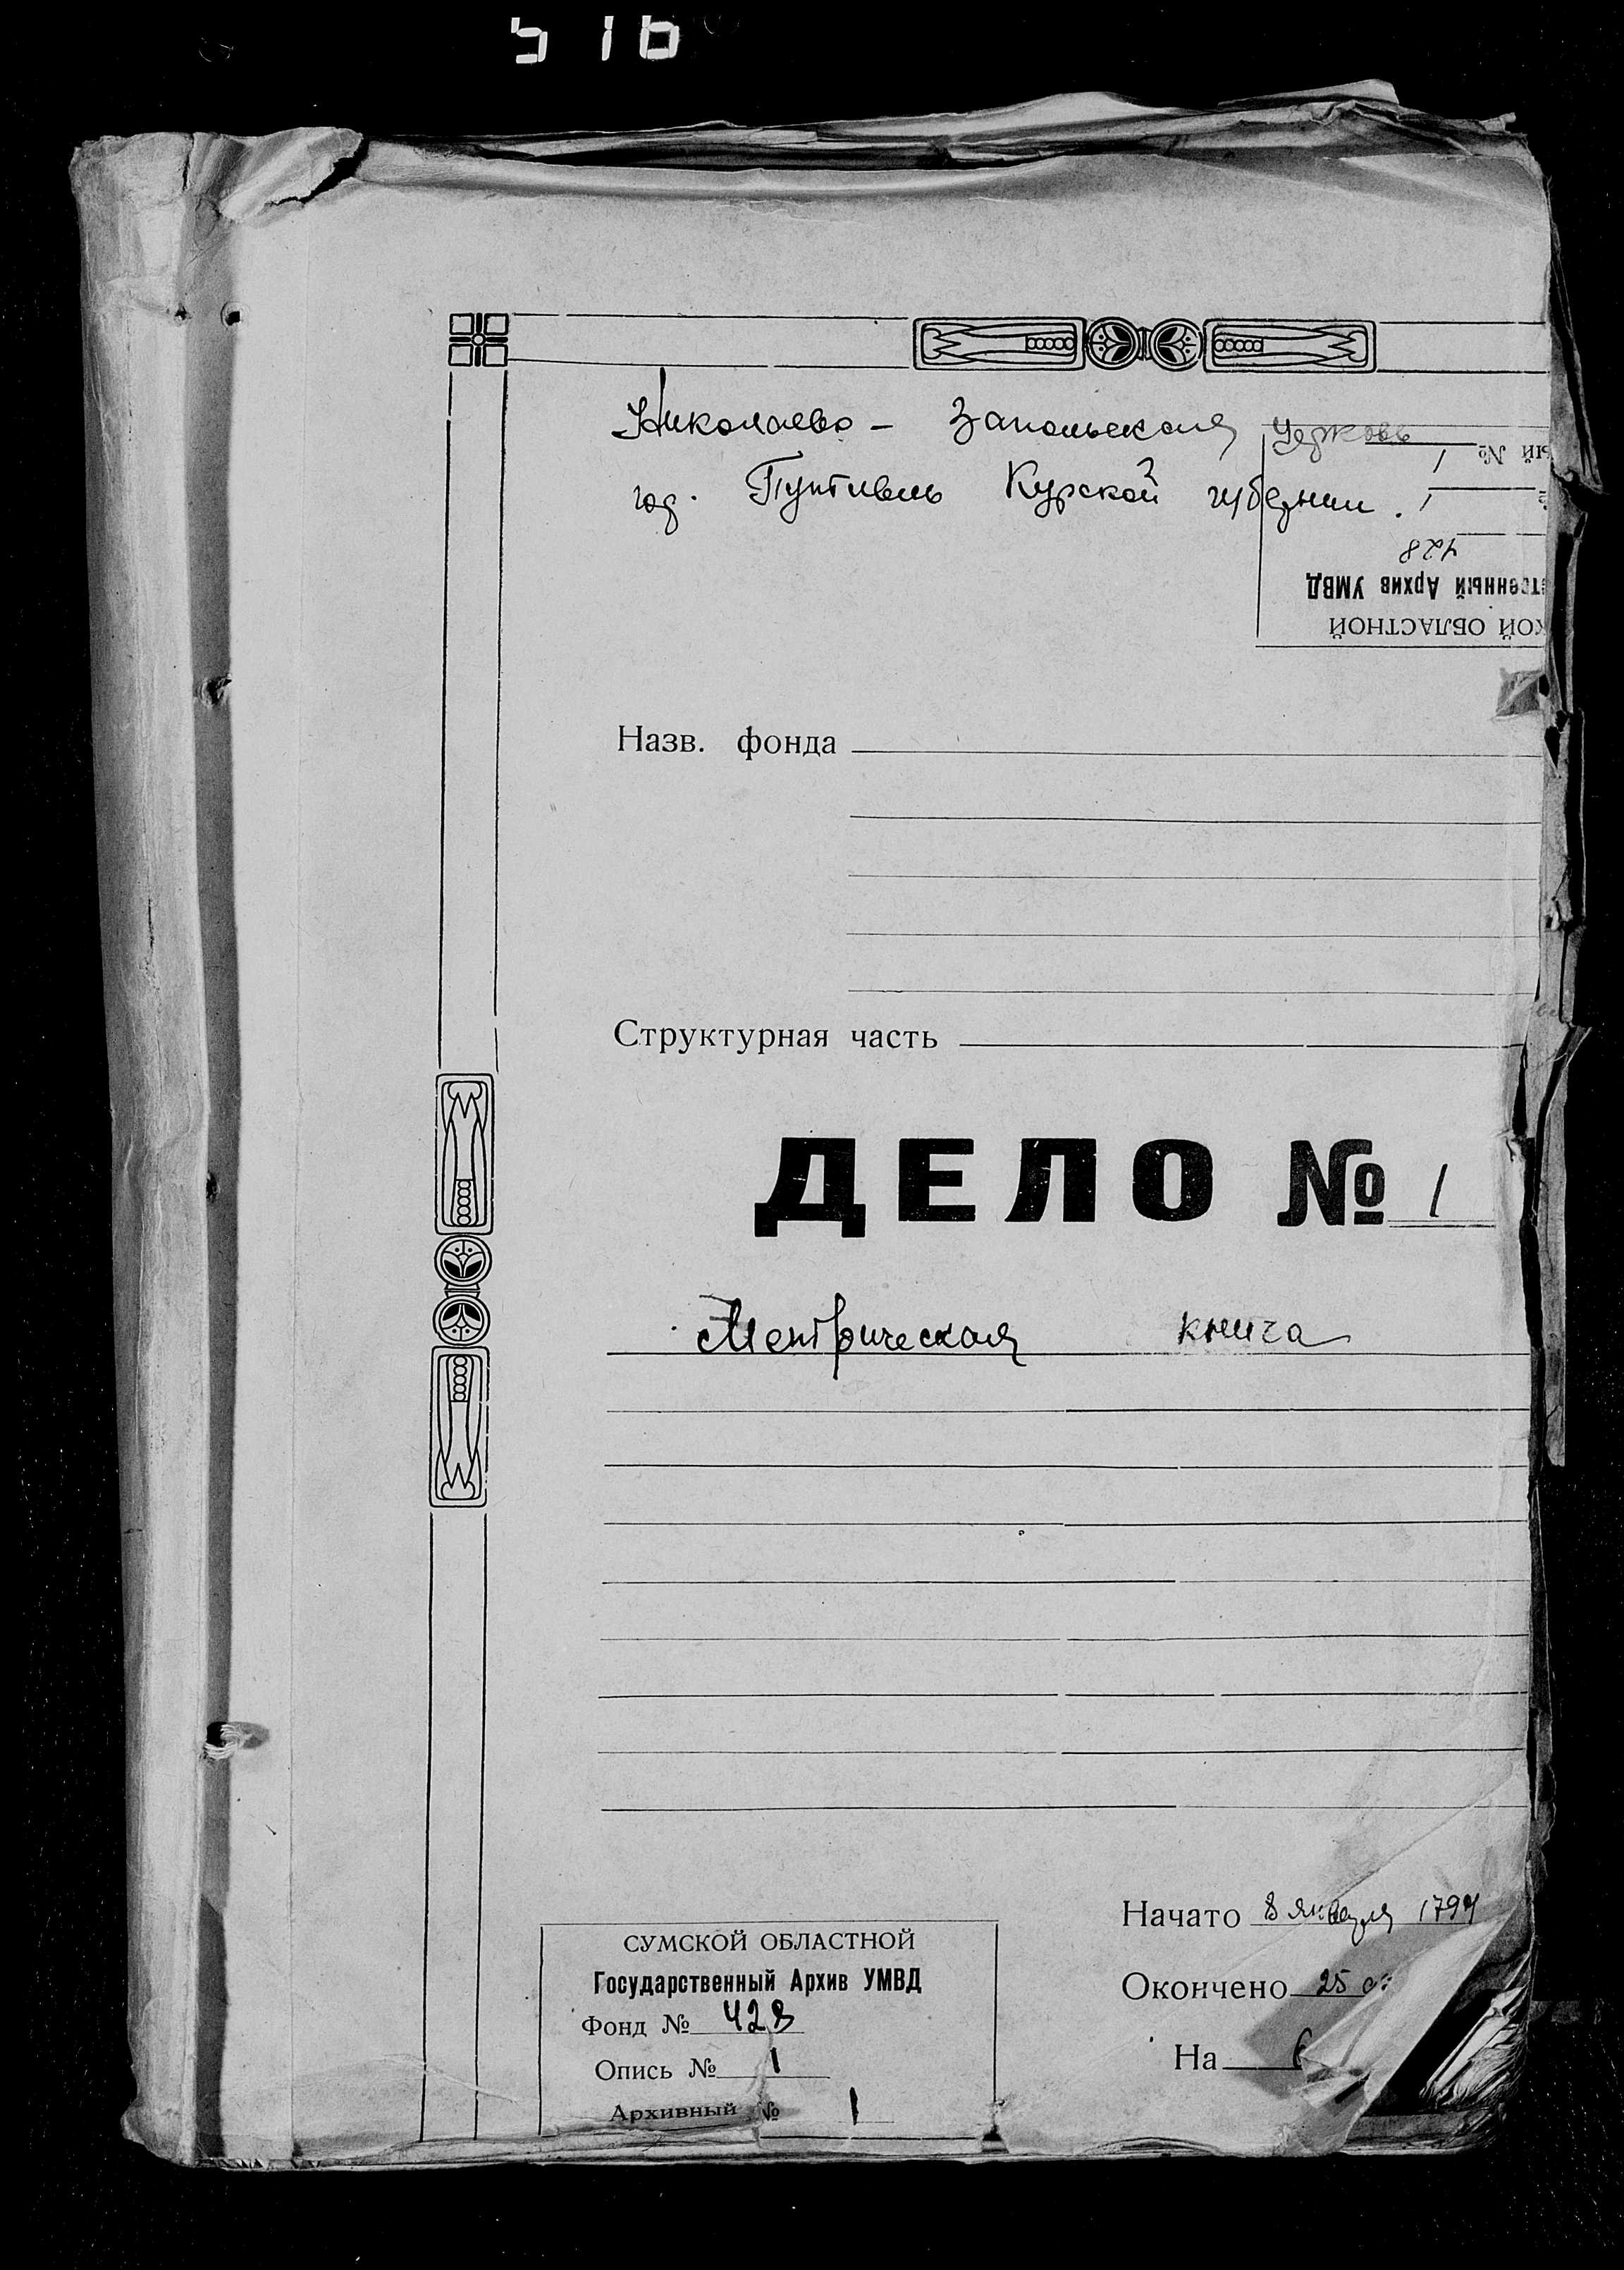 516
Николаево - Запольская церковь
гор. Путивль Курской губернии.
ый № 1
1
428
твенный Архив УМВД
КОЙ ОБЛАСТНОЙ
Назв. фонда
Структурная часть
ДЕЛО № 1
Метрическая книга
Начато 8 января 1794
Окончено 25
На 6
СУМСКОЙ ОБЛАСТНОЙ
Государственный Архив УМВД
Фонд № 428
Опись № 1
Архивный № 1